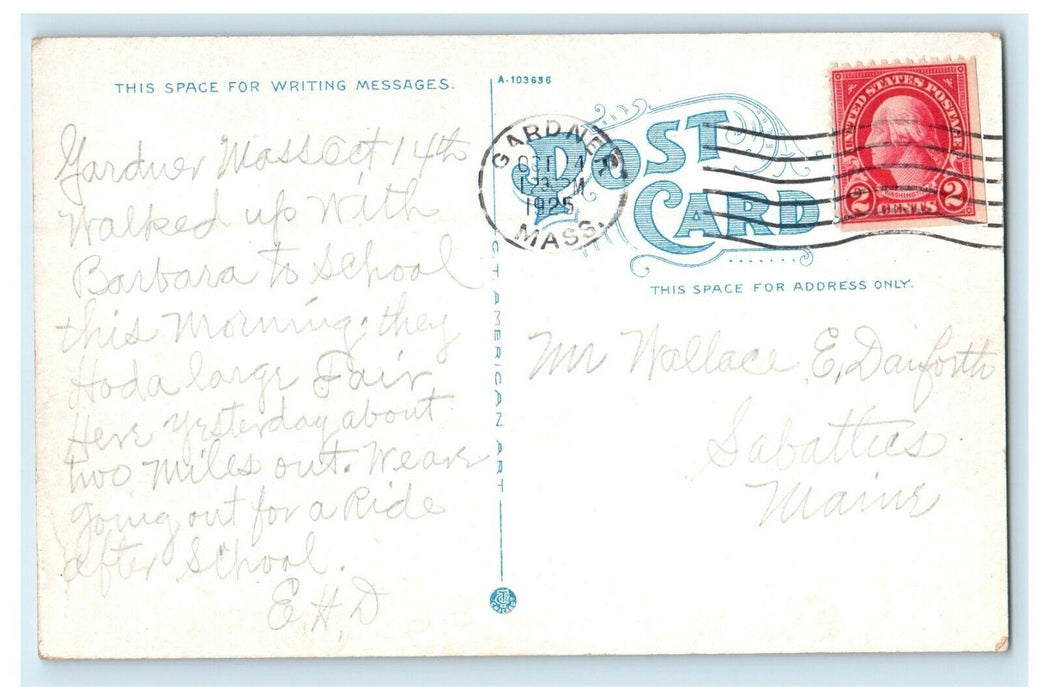 THIS SPACE FOR WRITING MESSAGES.
Gardner Mass Oct 14th
Walked up with
Barbara to School
this Morning. they
Had a large Fair
Here Yesterday about
two Miles out. We are
going out for a Ride
after School.
E. H. D
A-103636
POST CARD
GARDNER
OCT 4
PM
1925
MASS.
UNITED STATES POSTAGE
WASHINGTON
2 CENTS 2
THIS SPACE FOR ADDRESS ONLY.
C T AMERICAN ART
Mr Wallace E. Danforth
Sabattus
Maine